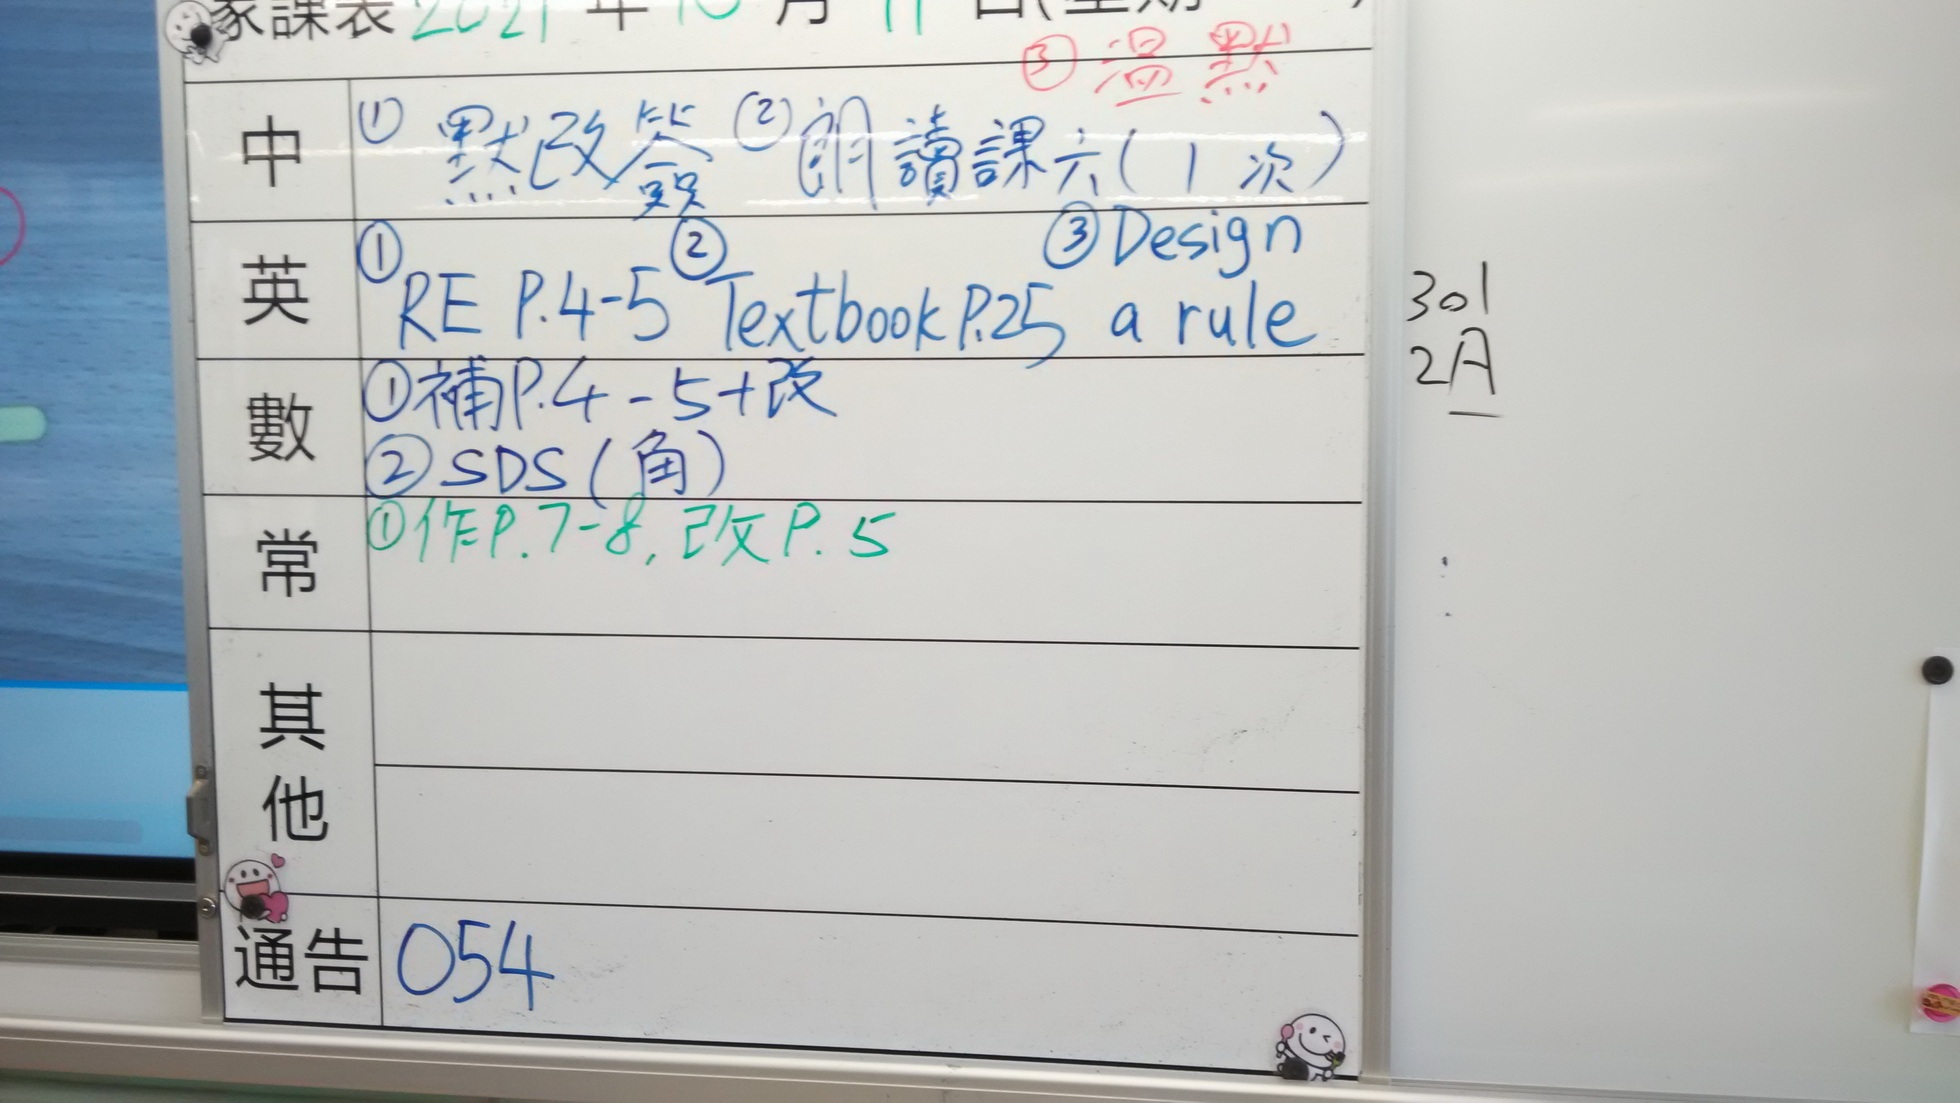 家課表 2021 年 10 月 11 日(星期 )
③ 溫默
中 ① 默改簽 ② 朗讀課六(1次)
英 ① RE P.4-5 ② Textbook P.25 ③ Design a rule
數 ① 補P.4-5+改
② SDS(角)
常 ① 作P.7-8, 改P.5
其他
通告 054
301
2A